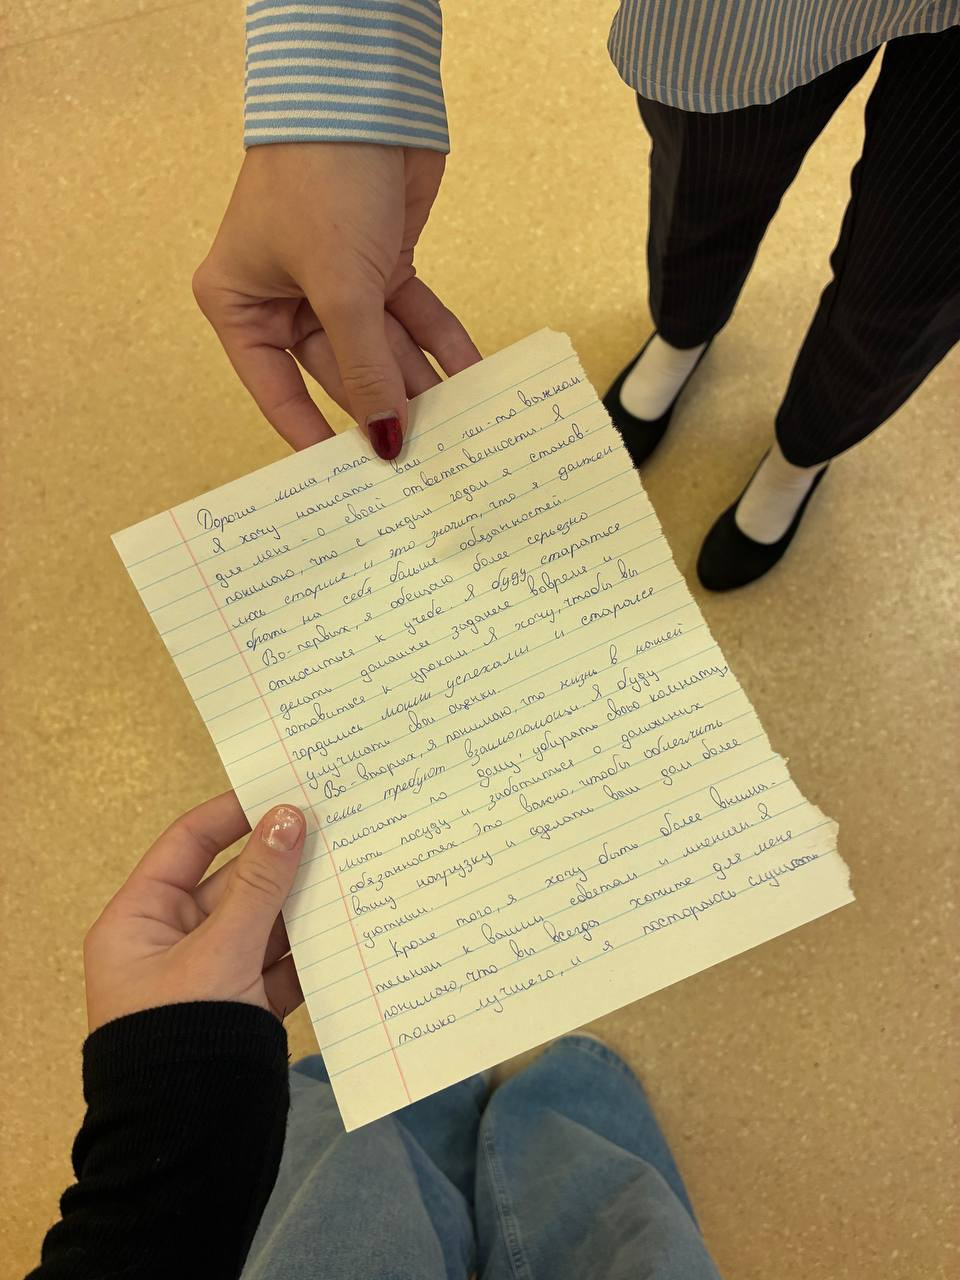 Дорогие мама, папа
Я хочу написать вам о чем-то важном
для меня - о своей ответственности. Я
понимаю, что с каждым годом я станов-
люсь старше, и это значит, что я должен
брать на себя больше обязанностей.
Во-первых, я обещаю более серьезно
относиться к учебе. Я буду стараться
делать домашнее задание вовремя и
готовиться к урокам. Я хочу, чтобы вы
гордились моими успехами и старался
улучшать свои оценки.
Во-вторых, я понимаю, что жизнь в нашей
семье требует взаимопомощи. Я буду
помогать по дому, убирать свою комнату,
мыть посуду и заботиться о домашних
обязанностях. Это важно, чтобы облегчить
вашу нагрузку и сделать ваш дом более
уютным.
Кроме того, я хочу быть более внима-
тельным к вашим советам и мнениям. Я
понимаю, что вы всегда хотите для меня
только лучшего, и я постараюсь слушать